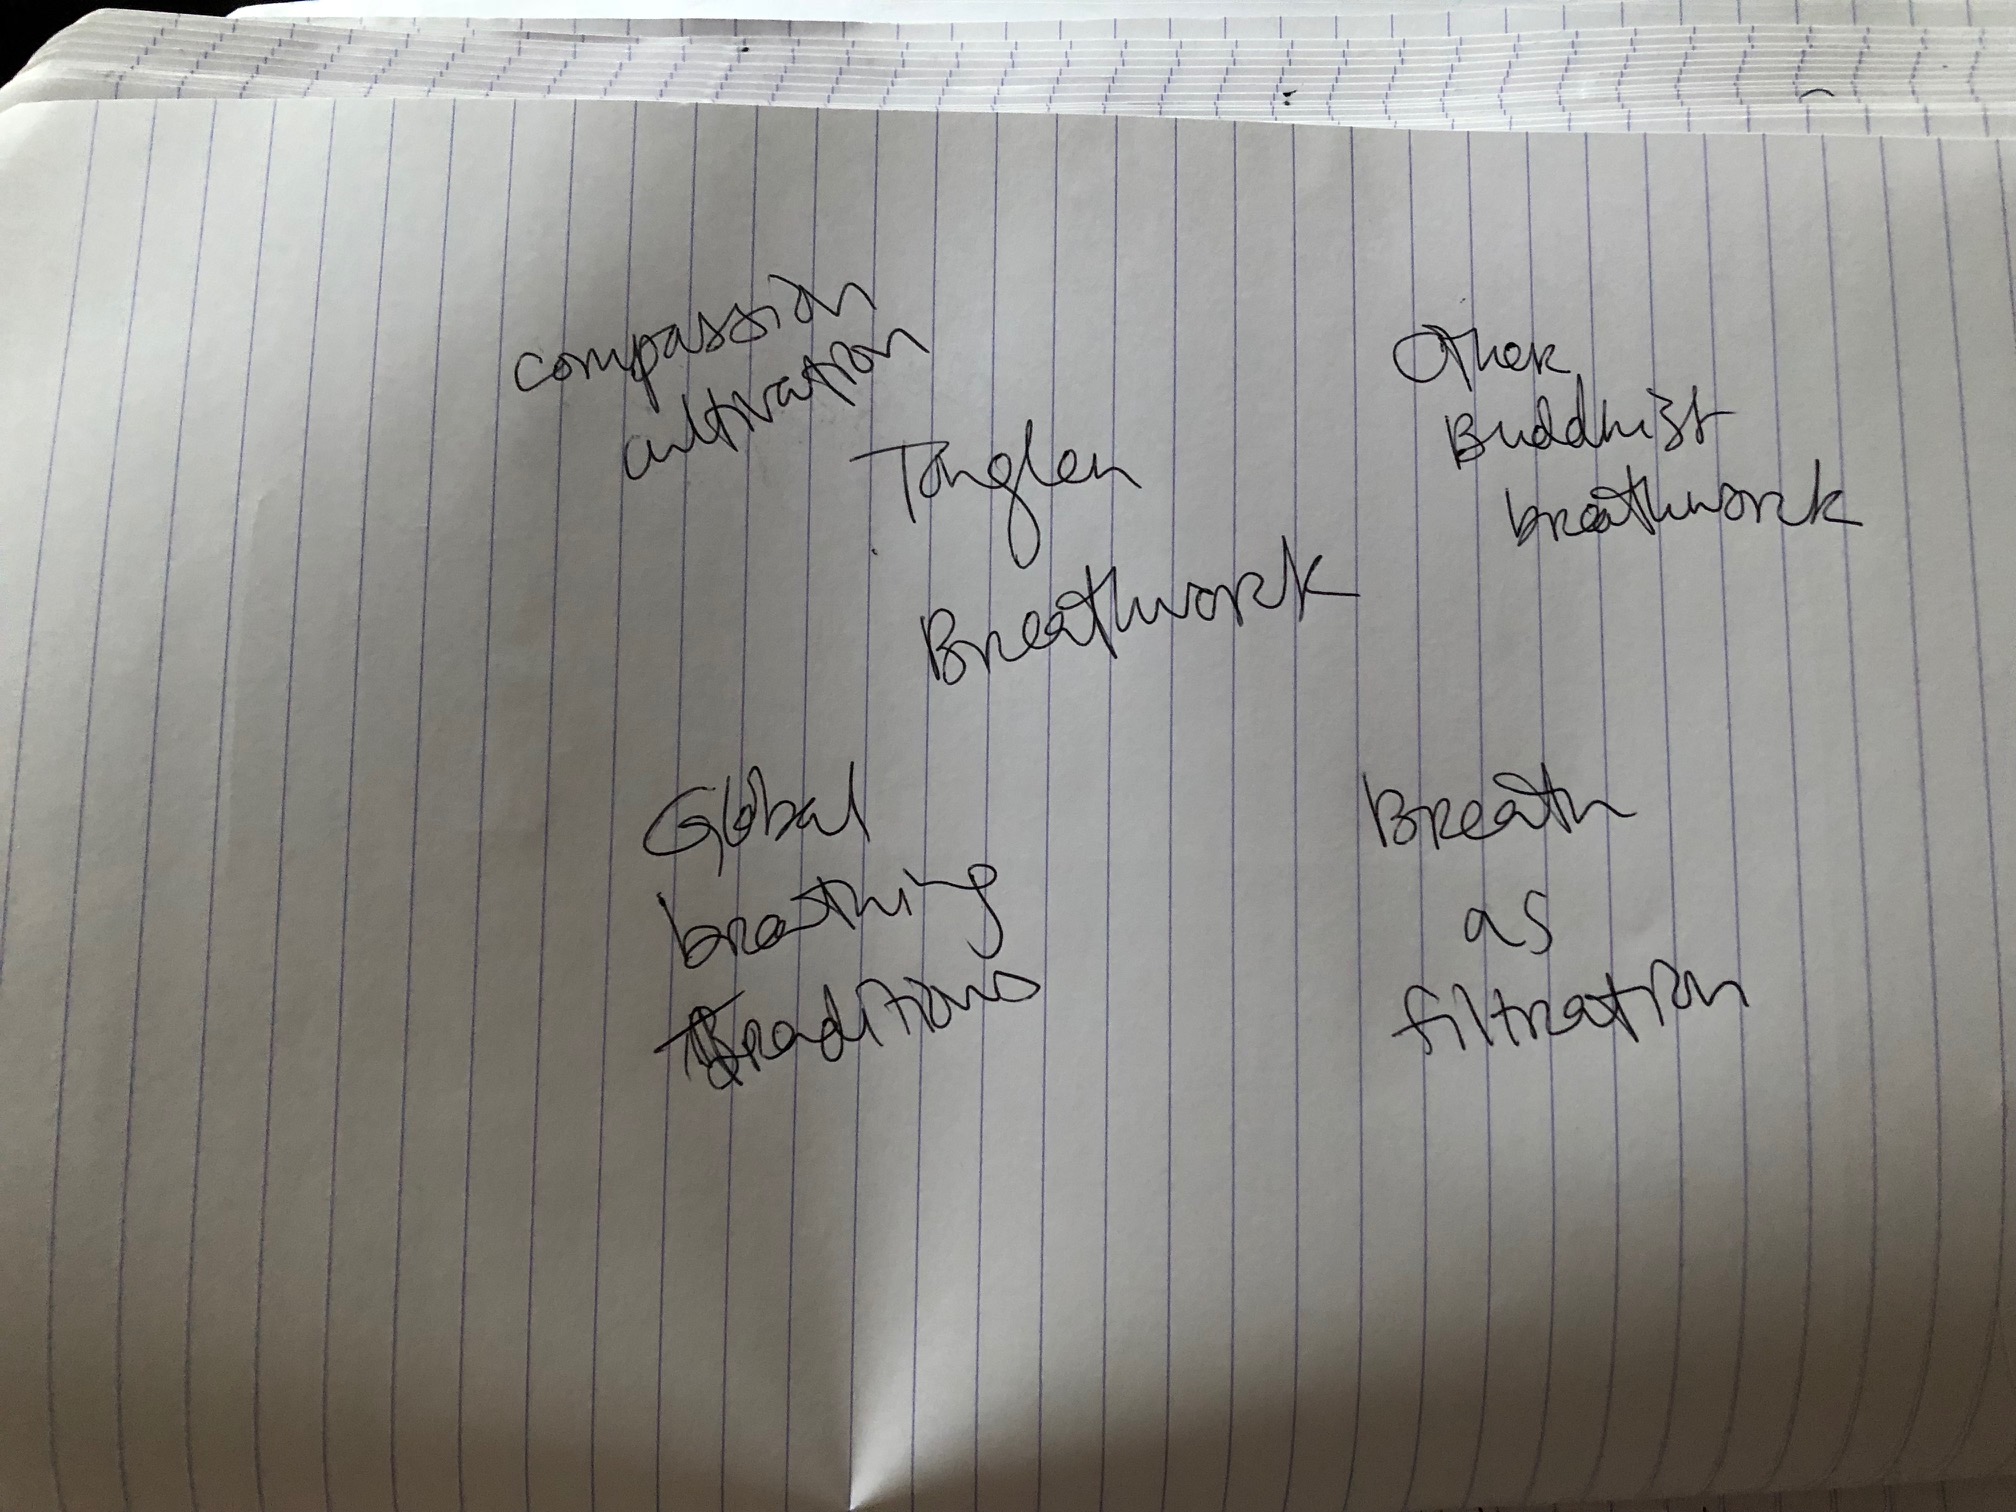 compassion
cultivation
Tonglen
Breathwork
Other
Buddhist
breathwork
Global
breathing
traditions
Breath
as
filtration